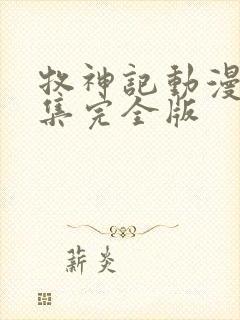 牧神記動漫
集完全版
薪炎